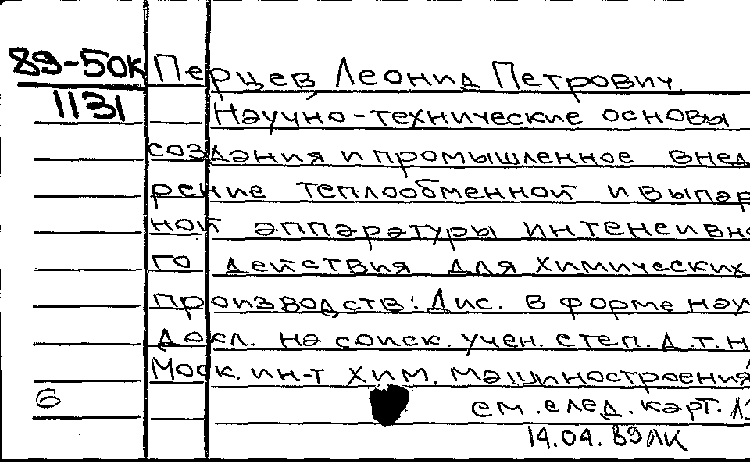 89-50к Перцев Леонид Петрович
1131 Научно-технические основы
создания и промышленное внед
рение теплообменной и выпар
ной аппаратуры интенсивно
го действия для химических
производств: Дис. в форме науч
докл. на соиск. учен. степ. д.т.н
Моск. ин-т хим. машиностроения
6 см. след. карт.
14.04.89 ЛК